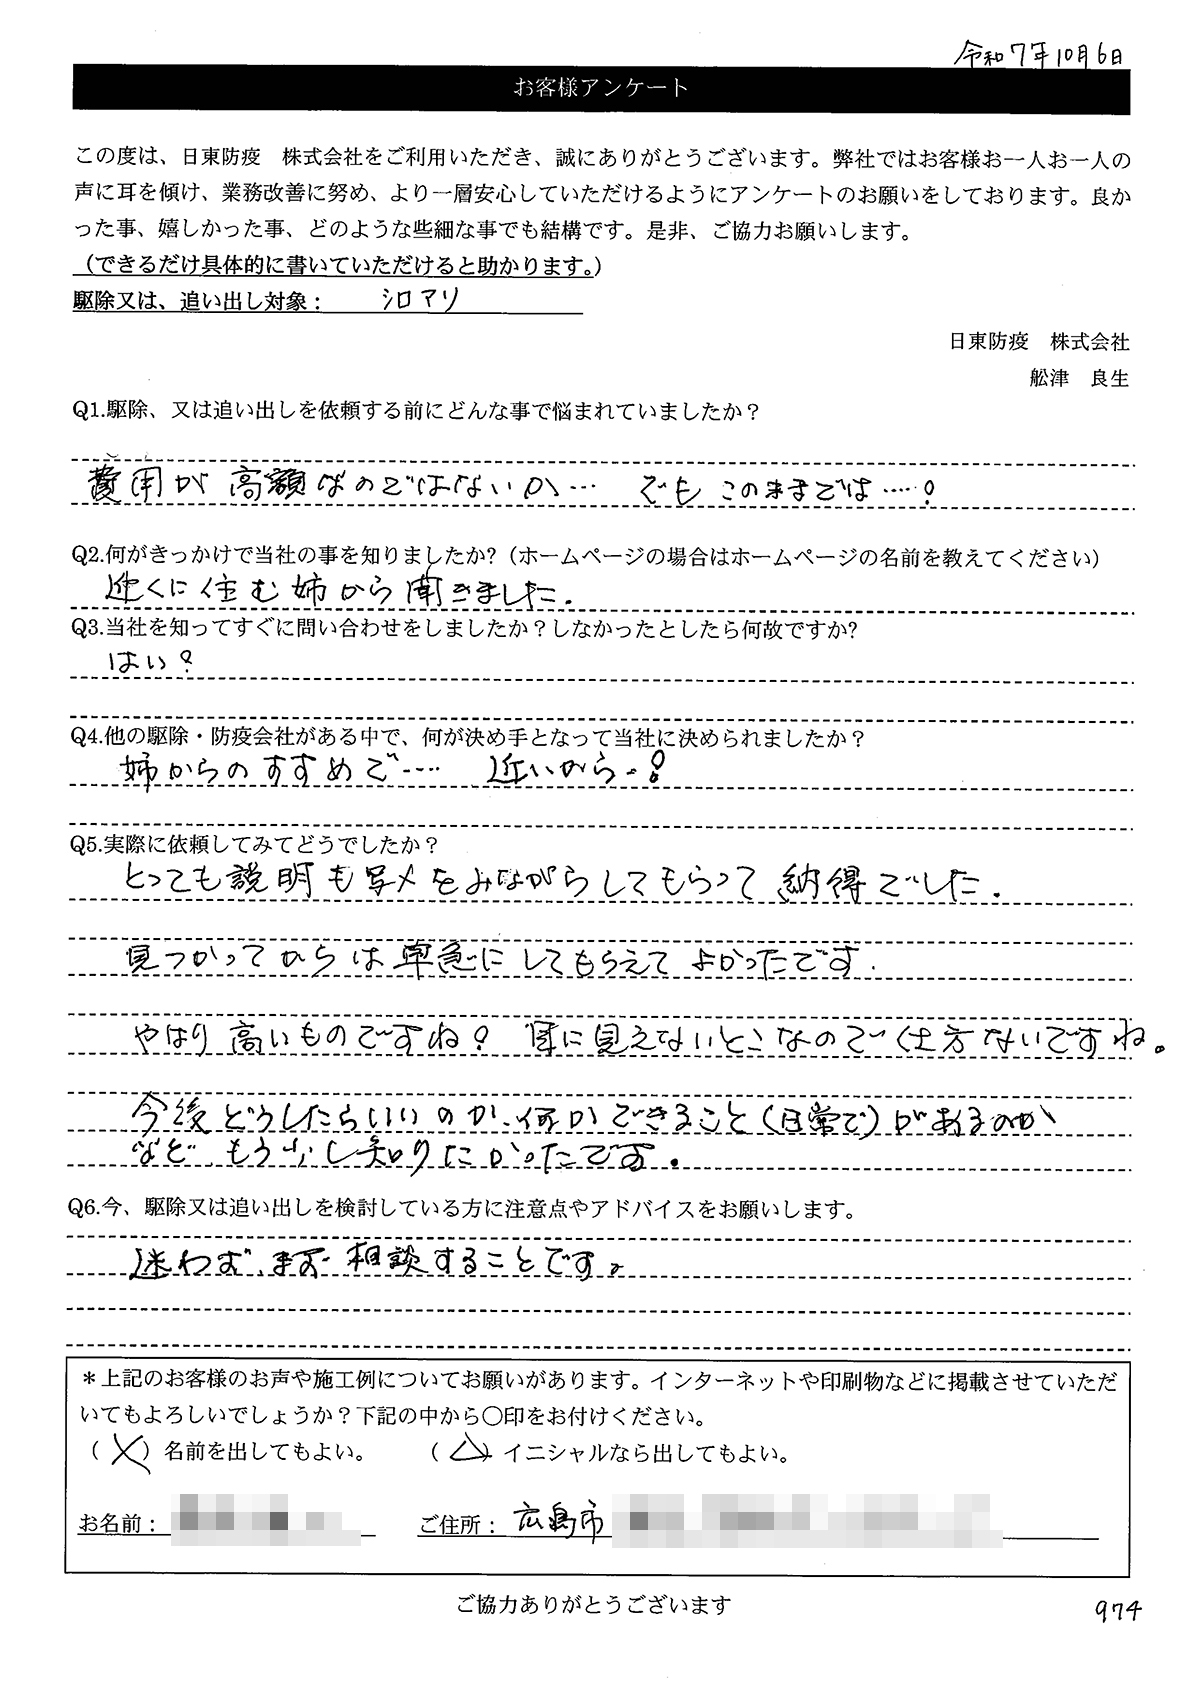 令和7年10月6日
お客様アンケート
この度は、日東防疫　株式会社をご利用いただき、誠にありがとうございます。弊社ではお客様お一人お一人の
声に耳を傾け、業務改善に努め、より一層安心していただけるようにアンケートのお願いをしております。良か
った事、嬉しかった事、どのような些細な事でも結構です。是非、ご協力お願いします。
（できるだけ具体的に書いていただけると助かります。）
駆除又は、追い出し対象：　シロアリ
日東防疫　株式会社
舩津　良生
Q1.駆除、又は追い出しを依頼する前にどんな事で悩まれていましたか？
費用が高額なのではないか…　でもこのままでは……？
Q2.何がきっかけで当社の事を知りましたか?（ホームページの場合はホームページの名前を教えてください）
近くに住む姉から聞きました.
Q3.当社を知ってすぐに問い合わせをしましたか？しなかったとしたら何故ですか?
はい？
Q4.他の駆除・防疫会社がある中で、何が決め手となって当社に決められましたか？
姉からのすすめで….　近いから..？
Q5.実際に依頼してみてどうでしたか？
とっても説明も写メをみながらしてもらって納得でした.
見つかってからは早急にしてもらえてよかったです.
やはり高いものですね？　目に見えないとこなので仕方ないですね。
今後どうしたらいいのか、何かできること（日常で）があるのか
など、もう少し知りたかったです.
Q6.今、駆除又は追い出しを検討している方に注意点やアドバイスをお願いします。
迷わず、まず相談することです。
＊上記のお客様のお声や施工例についてお願いがあります。インターネットや印刷物などに掲載させていただ
いてもよろしいでしょうか？下記の中から〇印をお付けください。
（ × ）名前を出してもよい。　（ △ ）イニシャルなら出してもよい。
お名前：　ご住所：　広島市
ご協力ありがとうございます
974